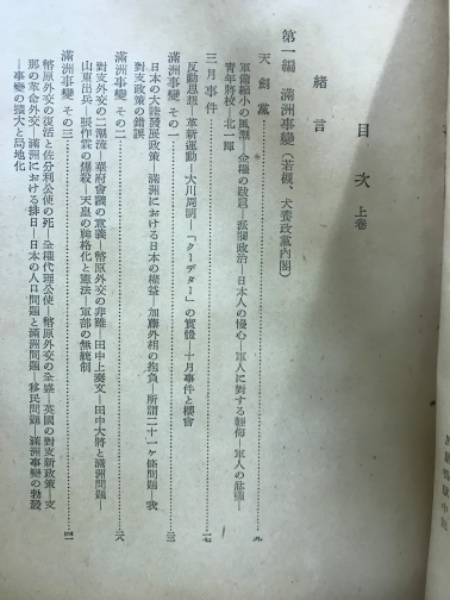 目次 上卷
緒言
第一編 滿洲事變（若槻、犬養政黨內閣）
天劍黨……九
軍備縮小の風潮―金權の跋扈―派閥政治―日本人の慢心―軍人に對する輕侮―軍人の
靑年將校―北一輝
三月事件……一七
反動思想―革新運動―大川周明―「クーデター」の實體―十月事件と櫻會
滿洲事變 その一……三
日本の大陸發展政策 滿洲における日本の權益―加藤外相の抱負―所謂二十一ヶ條問題―我
對支政策の錯誤
滿洲事變 その二……二八
對支外交の二潮流―華府會議の意義―幣原外交の非難―田中上奏文―田中大將と滿洲問題―
山東出兵―張作霖の爆殺―天皇の嚴格化と憲法―軍部の無統制
滿洲事變 その三……四一
幣原外交の復活と佐分利公使の死―重光代理公使―幣原外交の全盛―英國の對支新政策―支
那の革命外交―滿洲における排日―日本の人口問題と滿洲問題 移民問題―滿洲事變の勃發
―事變の擴大と局地化